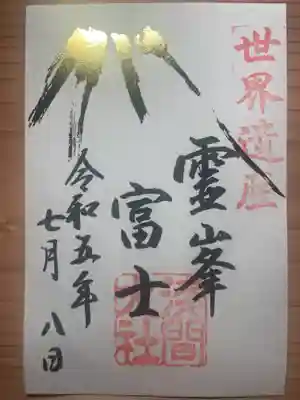 世界遺産
霊峯
富士
浅間
大社
令和五年
七月八日